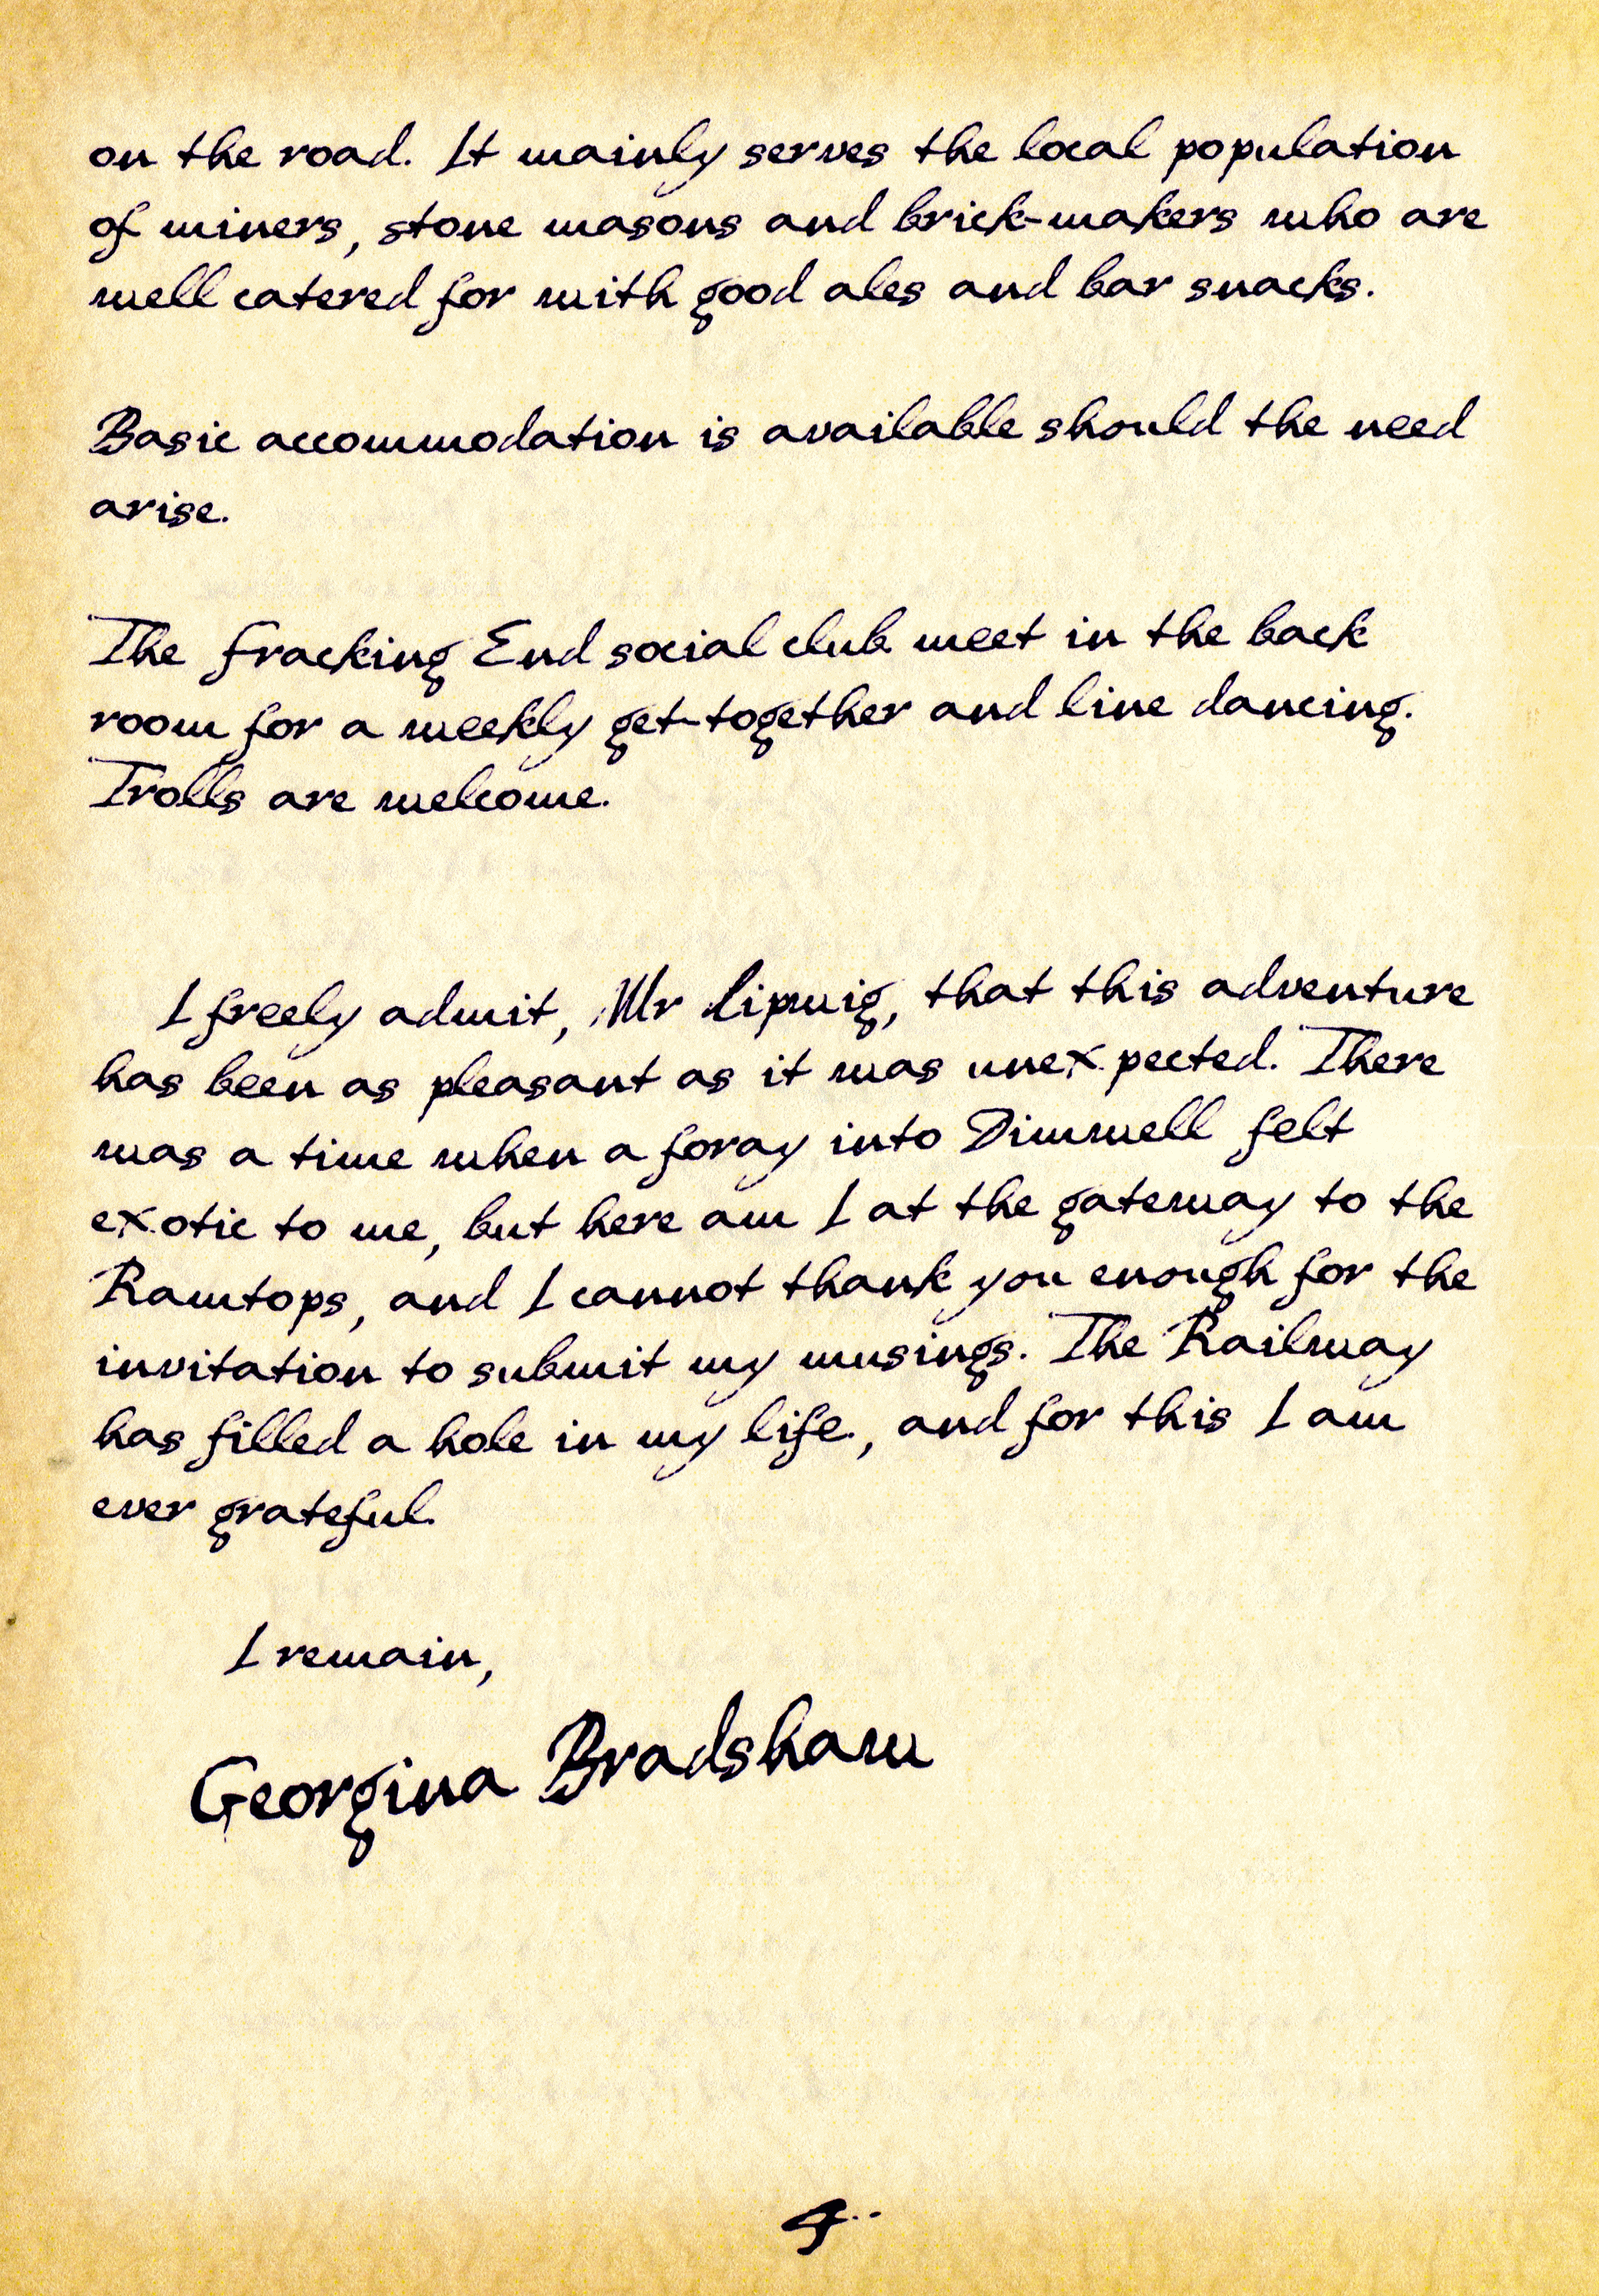 on the road. It mainly serves the local population
of miners, stone masons and brick-makers who are
well catered for with good ales and bar snacks.
Basic accommodation is available should the need
arise.
The Fracking End social club meet in the back
room for a weekly get-together and line dancing.
Trolls are welcome.
I freely admit, Mr Lipwig, that this adventure
has been as pleasant as it was unexpected. There
was a time when a foray into Dimwell felt
exotic to me, but here am I at the gateway to the
Ramtops, and I cannot thank you enough for the
invitation to submit my musings. The Railway
has filled a hole in my life, and for this I am
ever grateful.
I remain,
Georgina Bradshaw
4..